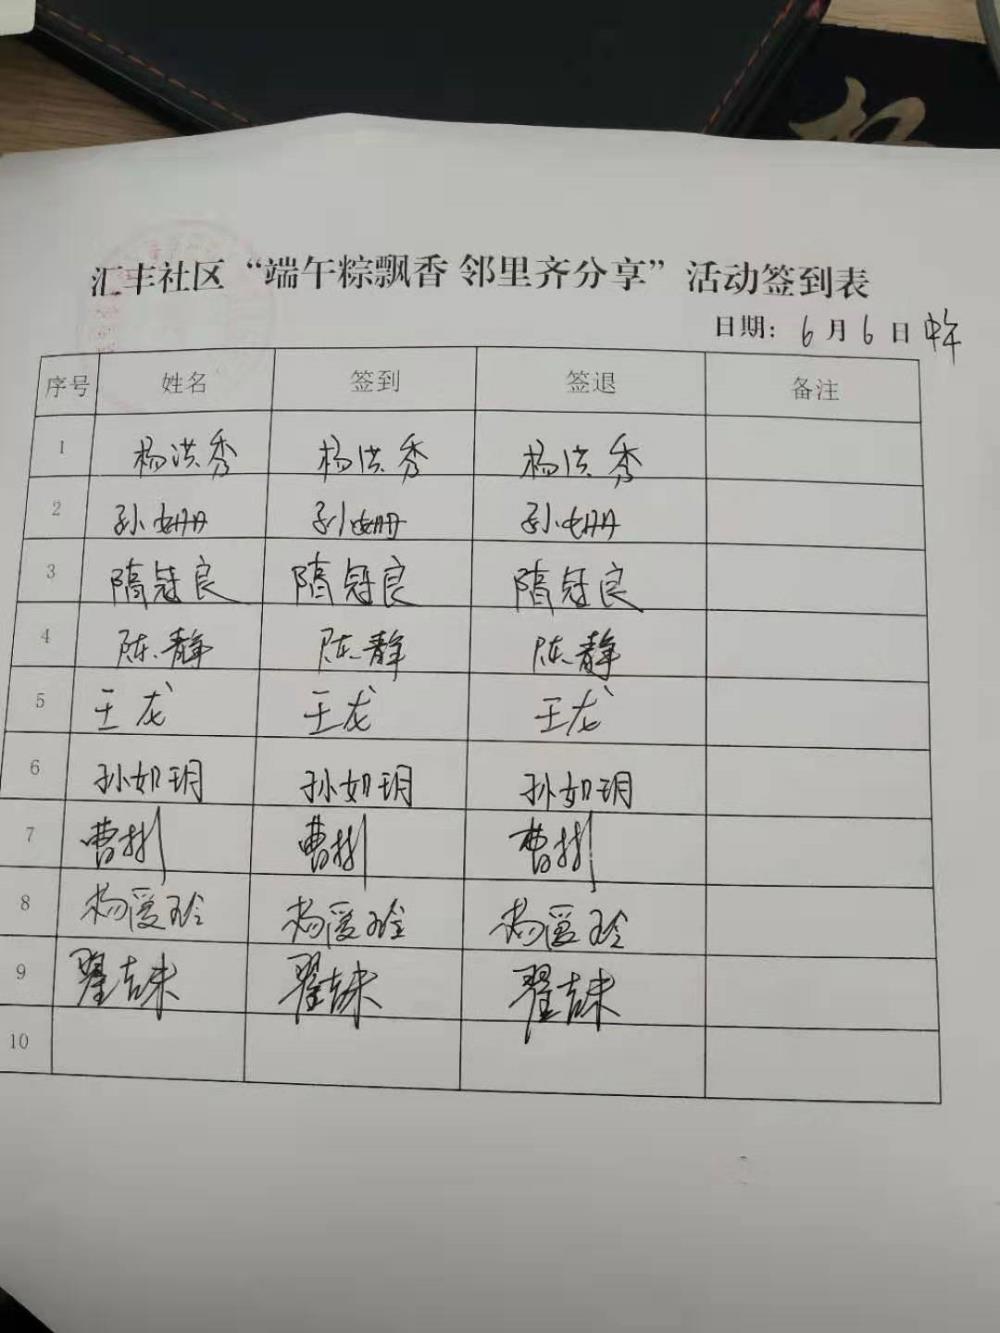 汇丰社区“端午粽飘香 邻里齐分享”活动签到表
日期：6月6日 中午
序号 姓名 签到 签退 备注
1 杨洪秀 杨洪秀 杨洪秀
2 孙姗 孙姗 孙姗
3 隋冠良 隋冠良 隋冠良
4 陈静 陈静 陈静
5 王龙 王龙 王龙
6 孙如玥 孙如玥 孙如玥
7 曹彬 曹彬 曹彬
8 杨爱玲 杨爱玲 杨爱玲
9 翟 翟 翟
10